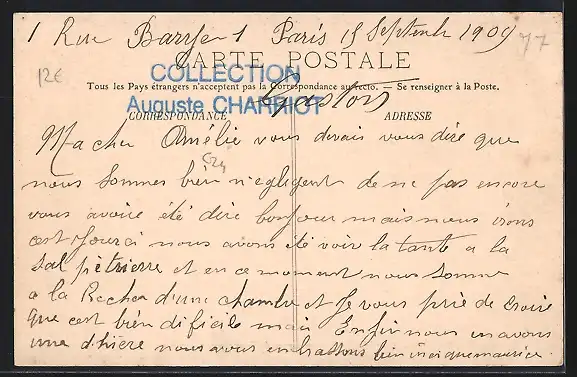 1 Rue Barrye 1 Paris 15 Septembre 1909
77
12€
CARTE POSTALE
COLLECTION
Tous les Pays étrangers n'acceptent pas la Correspondance au recto. — Se renseigner à la Poste.
Gaston
Auguste CHARRIOT
CORRESPONDANCE
ADRESSE
Ma cher Amélie vous devais vous dire que
C24
nous sommes bien négligent de ne pas encore
vous avoire été dire bonjour mais nous irons
cest Jourci nous avons été voir la tante a la
Sal pêtrierre et en ce moment nous somme
a la Recher d'une chambre et Je vous prie de croire
que cest bien dificile mais Enfin nous en avons
une nous vous embrassons bien maurice